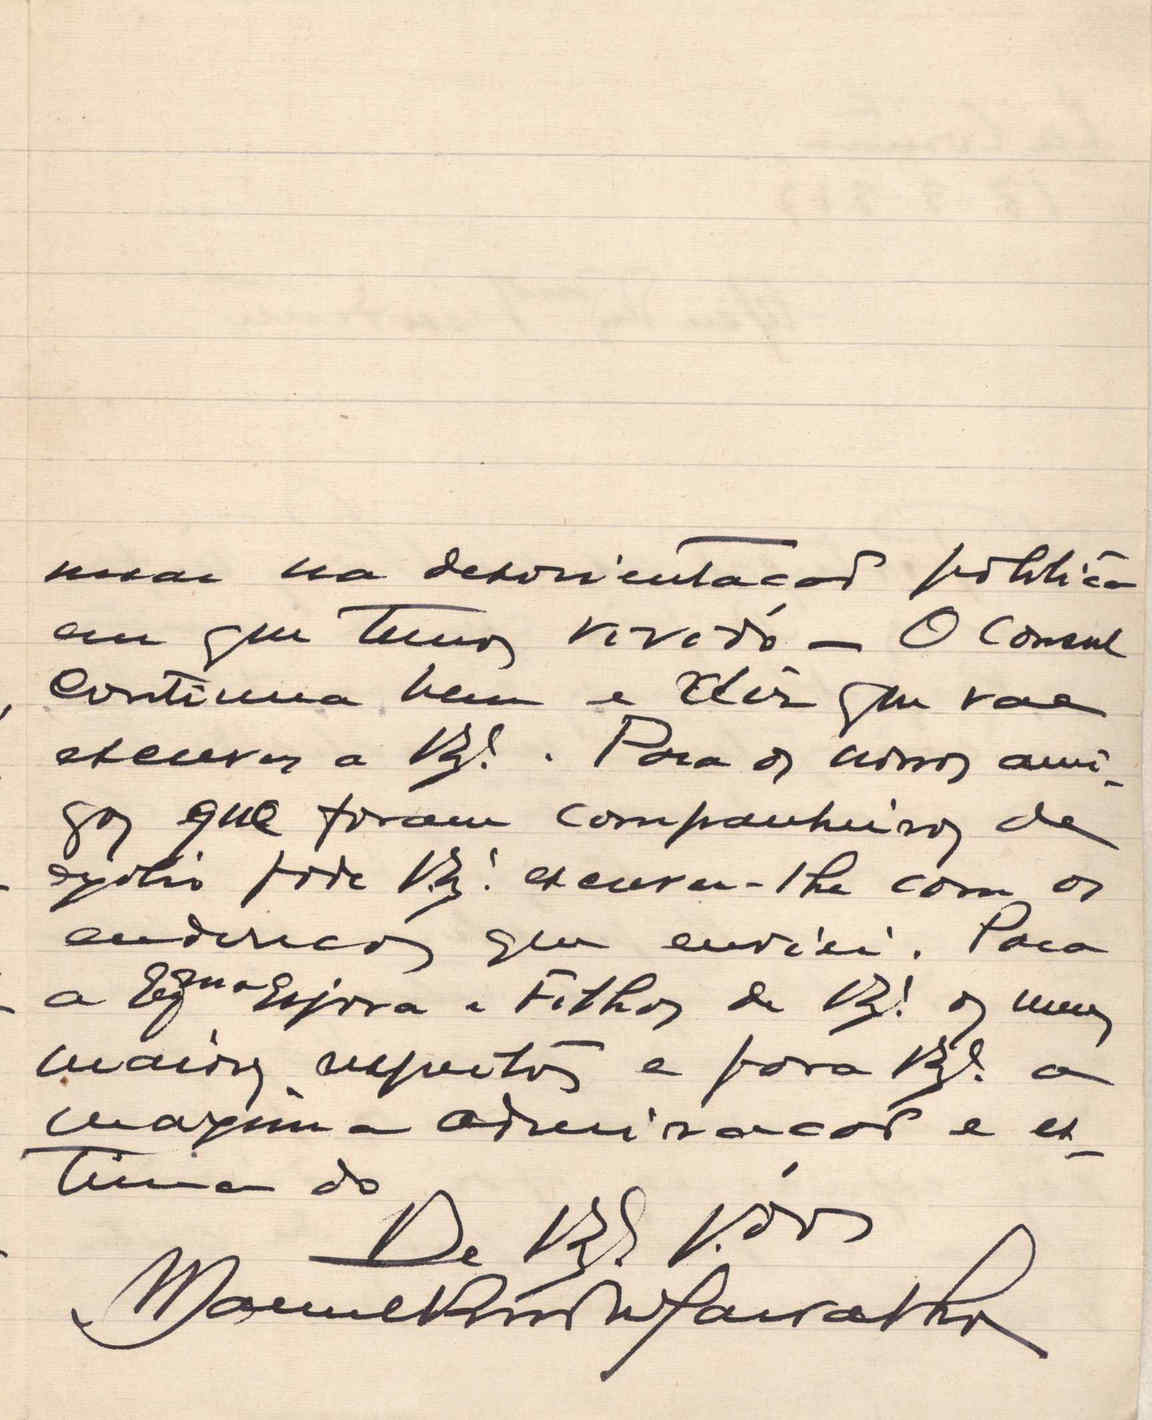 nuar na desorientação politica
em que temos vivido — O Consul
continua bem e diz que vae
escrever a V. Ex.ª. Para os nossos ami-
gos que foram companheiros de
exilio pode V. Ex.ª escrever-lhe com os
endereços que enviei. Para
a Exma Esposa e Filhos de V. Ex.ª os meus
maiores respeitos e para V. Ex.ª a
maxima admiração e es-
tima do
De V. Ex.ª
Manuel Carvalho